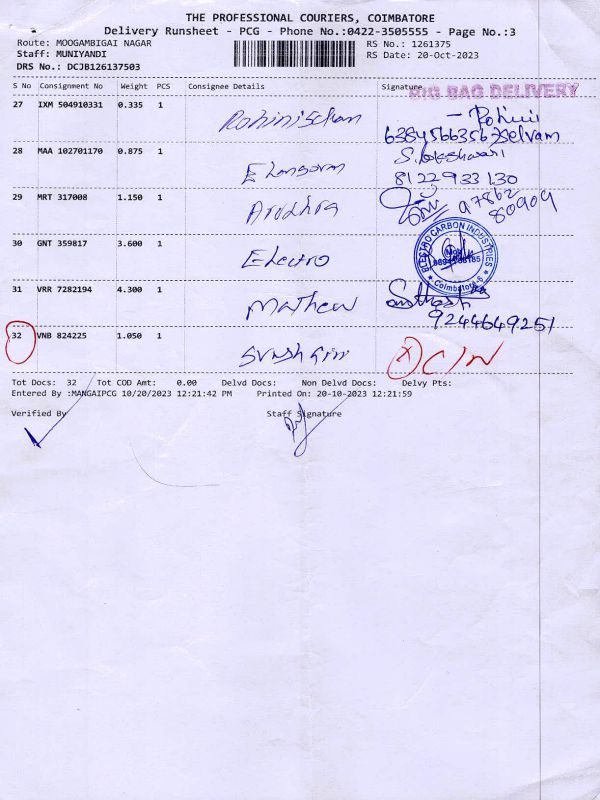 THE PROFESSIONAL COURIERS, COIMBATORE
Delivery Runsheet - PCG - Phone No.:0422-3505555 - Page No.:3
Route: MOOGAMBIGAI NAGAR RS No.: 1261375
Staff: MUNIYANDI RS Date: 20-Oct-2023
DRS No.: DCJB126137503
S No Consignment No Weight PCS Consignee Details Signature
BIG BAG DELIVERY
27 IXM 504910331 0.335 1
28 MAA 102701170 0.875 1
8122933130
29 MRT 317008 1.150 1 Arudhra 97862
80909
30 GNT 359817 3.600 1 Electro
ELECTRO CARBON INDUSTRIES
Coimbatore-6
31 VRR 7282194 4.300 1 Mathew
9244649251
32 VNB 824225 1.050 1 X C/N
Tot Docs: 32 Tot COD Amt: 0.00 Delvd Docs: Non Delvd Docs: Delvy Pts:
Entered By :MANGAIPCG 10/20/2023 12:21:42 PM Printed On: 20-10-2023 12:21:59
Verified By Staff Signature